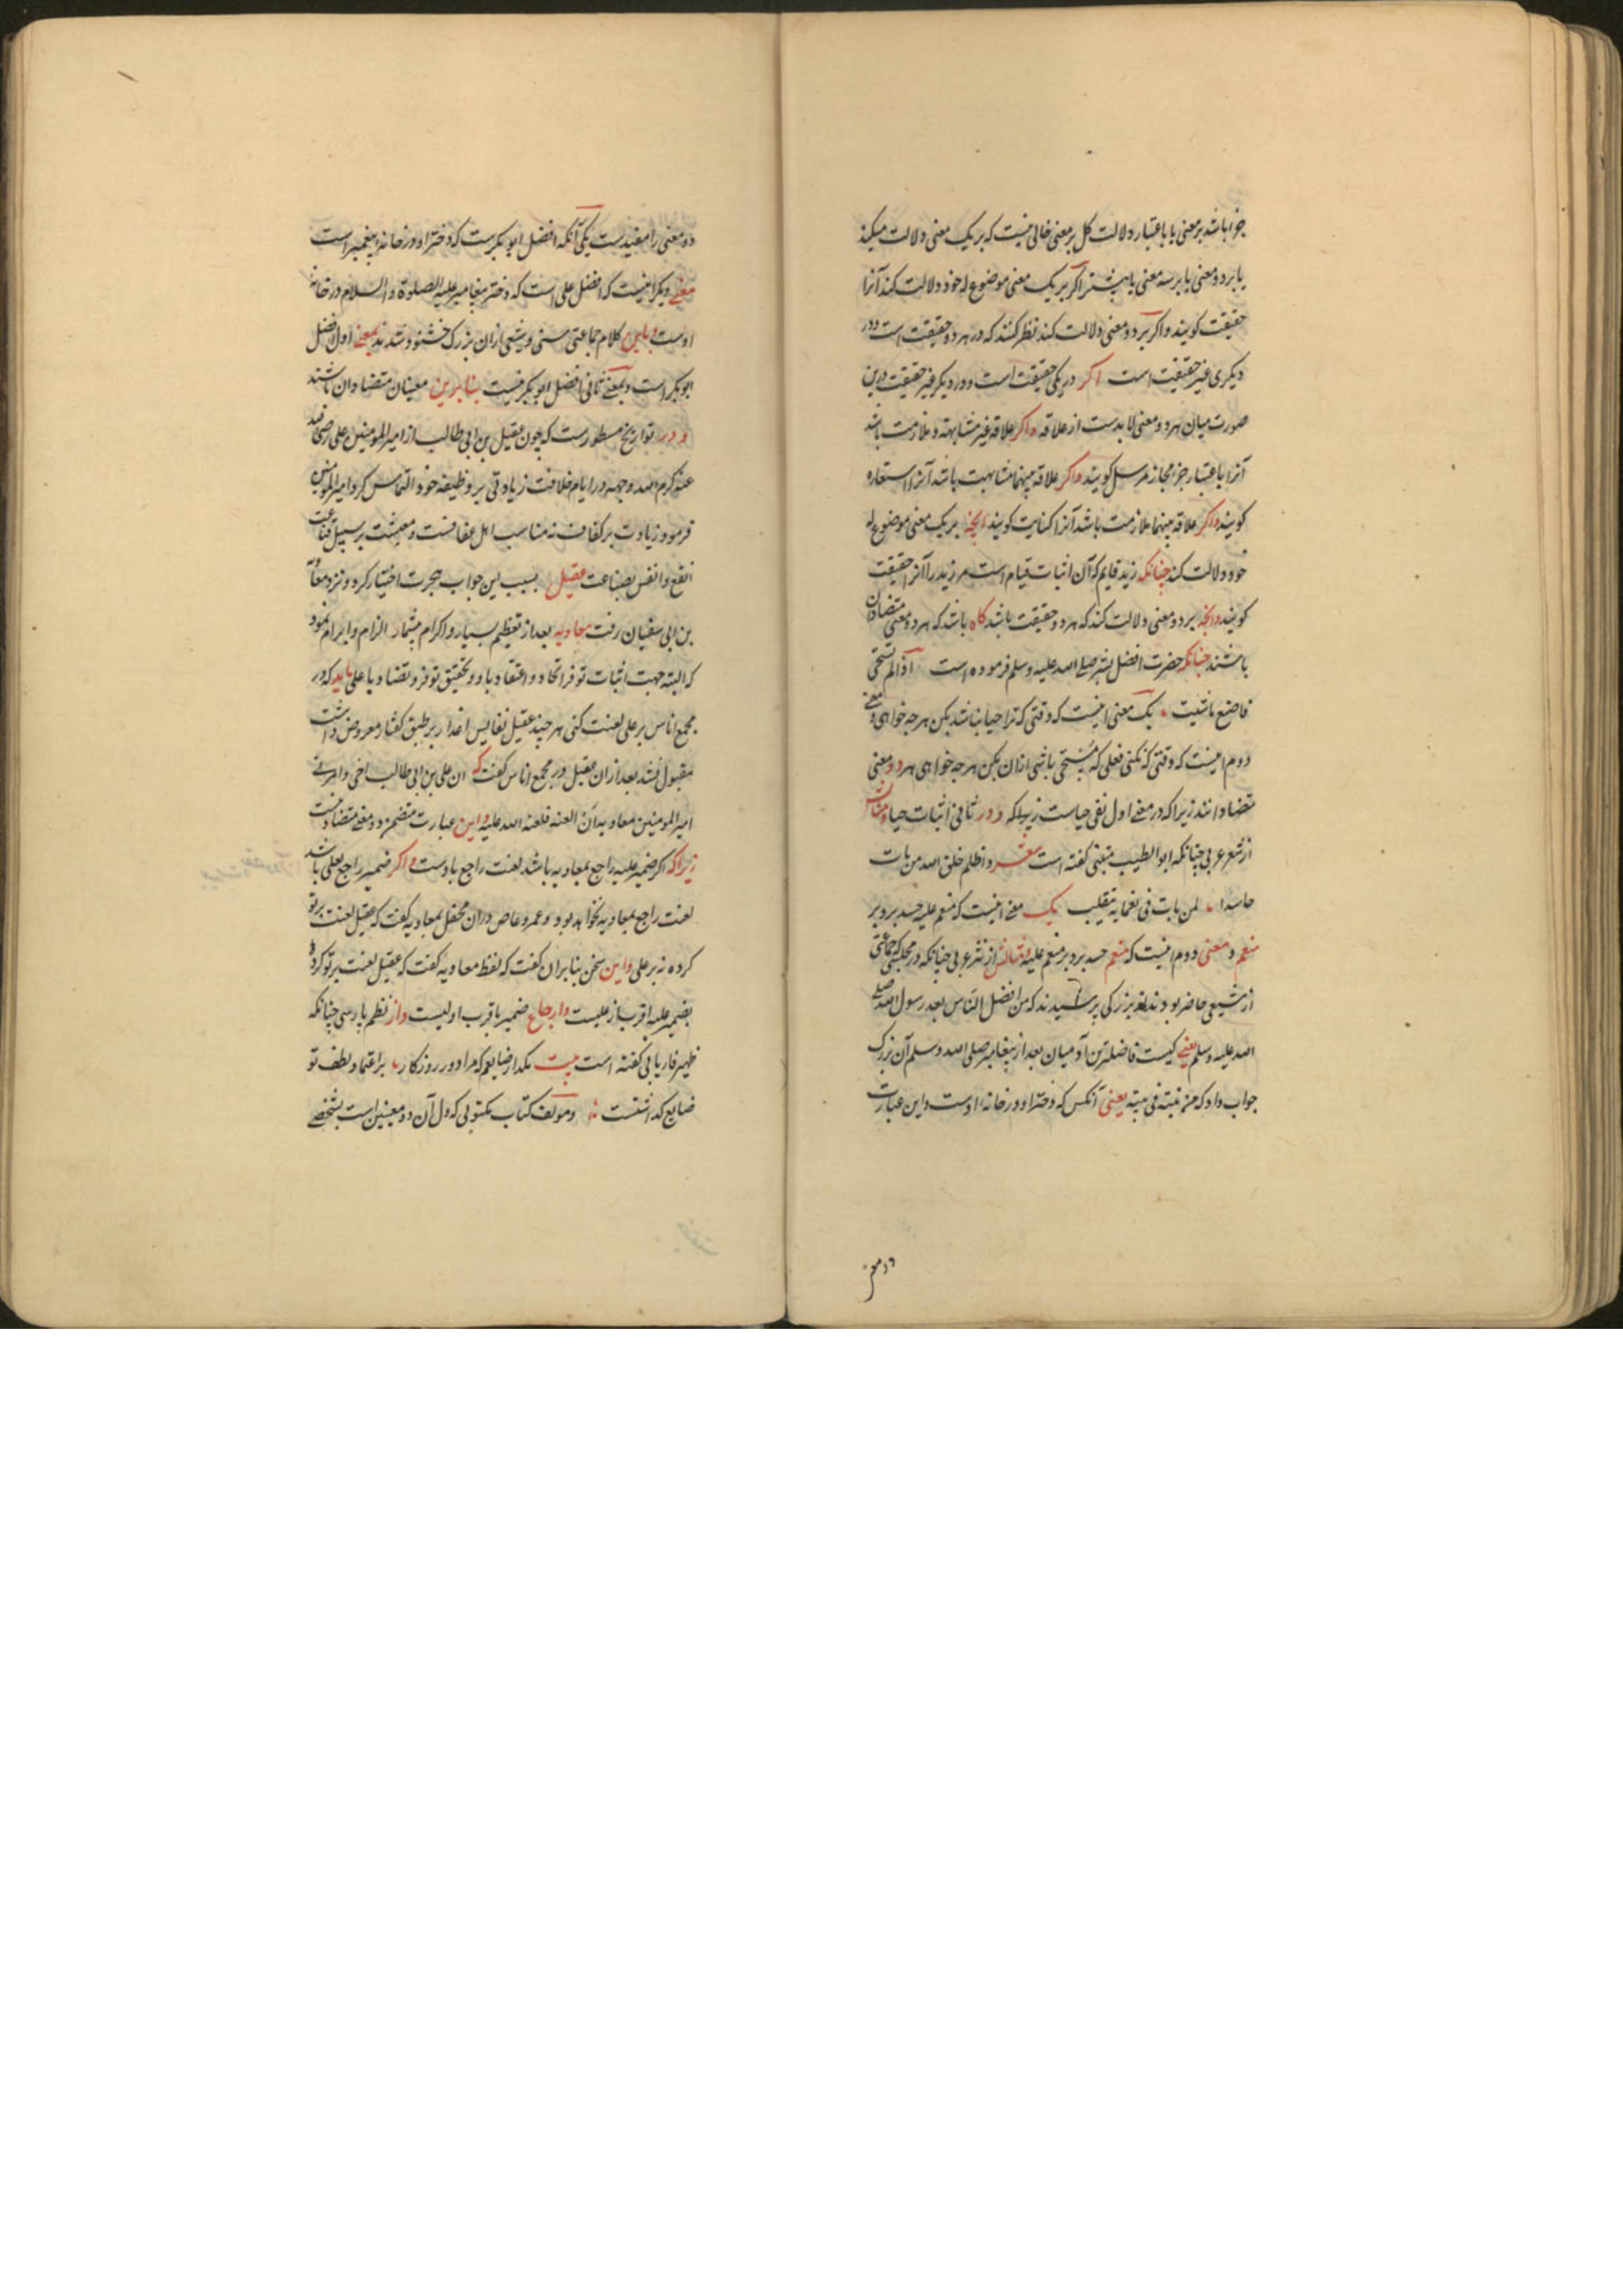 جزا باشد بر معنی یا باعتبار دلالت کل بر معنی خالی نیست که بر یک معنی دلالت میکند
یا بر دو معنی یا بر سه معنی یا بیشتر اکر بر یک معنی موضوع له خود دلالت کند آنرا
حقیقت کویند و اکر بر دو معنی دلالت کند نظر کنند که در هر دو حقیقت است و در
دیکری غیر حقیقت است اکر در یکی حقیقت است و در دیکر غیر حقیقت درین
صورت میان هر دو معنی لابدست از علاقه و اکر علاقه غیر مشابهت و ملازمت باشد
آنرا باعتبار جزا مجاز مرسل کویند و اکر علاقه بینهما مشابهت باشد آنرا استعاره
کویند و اکر علاقه بینهما ملازمت باشد آنرا کنایت کویند آنچه بر یک معنی موضوع له
خود دلالت کند چنانکه زید قایم که آن اثبات قیام است مر زید را آنرا حقیقت
کویند و آنچه بر دو معنی دلالت کند که هر دو حقیقت باشد کاه باشد که هر دو معنی متضادان
باشند چنانکه حضرت افضل بشر صلی الله علیه وسلم فرموده است اذا لم تستحی
فاصنع ما شیت یک معنی اینست که وقتی که ترا حیا نباشد بکن هر چه خواهی و معنی
دوم اینست که وقتی که نکنی فعلی که مستحی باشی ازان بکن هر چه خواهی هر دو معنی
متضادانند زیرا که در معنی اول نفی حیاست زیراکه و در ثانی اثبات حیا و مثالش
از شعر عربی چنانکه ابو الطیب متنبی کفته است شعر و اظلم خلق الله من بات
حاسدا لمن بات فی نعمایه یتقلب یک معنی اینست که منعم علیه حسد برد بر
منعم و معنی دوم اینست که منعم حسد برد بر منعم علیه و مثالش از نثر عربی چنانکه در مجلسی که جماعتی
از شیعی حاضر بودند از بزرکی پرسیدند که من افضل الناس بعد رسول الله صلی
الله علیه وسلم یعنی کیست فاضلترین آدمیان بعد از پیغامبر صلی الله وسلم آن بزرک
جواب داد که من بنته فی بیته یعنی آنکس که دختر او در خانه اوست و این عبارت
دو معنی
دو معنی را مفیدست یکی آنکه افضل ابو بکرست که دختر او در خانه پیغمبر است
معنی دیکر اینست که افضل علی است که دختر پیغامبر علیه الصلوة و السلام در خانه
اوست و باین کلام جماعتی سنی و شیعی ازان بزرک خشنود شدند بمعنی اول افضل
ابو بکر است و بمعنی ثانی افضل ابو بکر نیست بنا برین معنیان متضادان باشند
و در تواریخ مسطورست که چون عقیل بن ابی طالب از امیر المومنین علی رضی الله
عنه کرم الله وجهه در ایام خلافت زیادتی بر وظیفه خود التماس کرد امیر المومنین
فرمود زیادت بر کفاف نه مناسب اهل عفافست و معیشت بر سبیل قناعت
انفع و انفس بضاعت عقیل بسبب این جواب هجرت اختیار کرد و نزد معاویه
بن ابی سفیان رفت معاویه بعد از تعظیم بسیار و اکرام بیشمار الزام و ابرام نمود
که البته جهت اثبات توفر اتحاد و اعتقاد با او و تحقیق توفر و تضاد با علی باید که در
مجمع اناس بر علی لعنت کنی هر چند عقیل نفایس اعذار بر طبق کفتار معروض داشت
مقبول نشد بعد ازان عقیل در مجمع اناس کفت که ان علی بن ابی طالب اخی و امرنی
امیر المومنین معاویه ان العنه فلعنه الله علیه و این عبارت متضمن دو معنی متضادست
زیرا که اکر ضمیر علیه راجع بمعاویه باشد لعنت راجع باوست و اکر ضمیر راجع بعلی باشد
لعنت راجع بمعاویه نخواهد بود و عمرو عاص دران محفل بمعاویه کفت که عقیل لعنت بر تو
کرده نه بر علی و این سخن بنابران کفت که لفظ معاویه کفت که عقیل لعنت بر تو کرده
بضمیر علیه اقرب از علیست و ارجاع ضمیر باقرب اولیست و از نظم پارسی چنانکه
ظهیر فاریابی کفته است بیت مکذار ضایعم که مرا دور روزکار بر اعتماد لطف تو
ضایع کذاشتست و مولف کتاب مکتوبی که دل آن دو معنیین است بشخصی